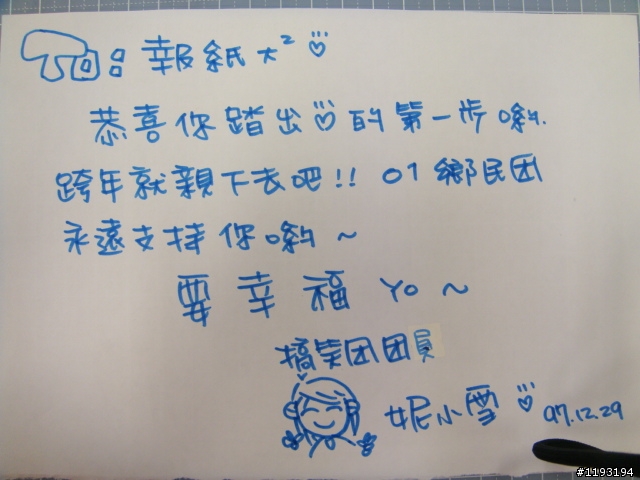 To: 報紙大²
恭喜你踏出♡的第一步喲.
跨年就親下去吧!! 01鄉民团
永遠支持你喲~
要幸福 YO ~
搞笑团团員
妮小雪
97.12.29
#1193194